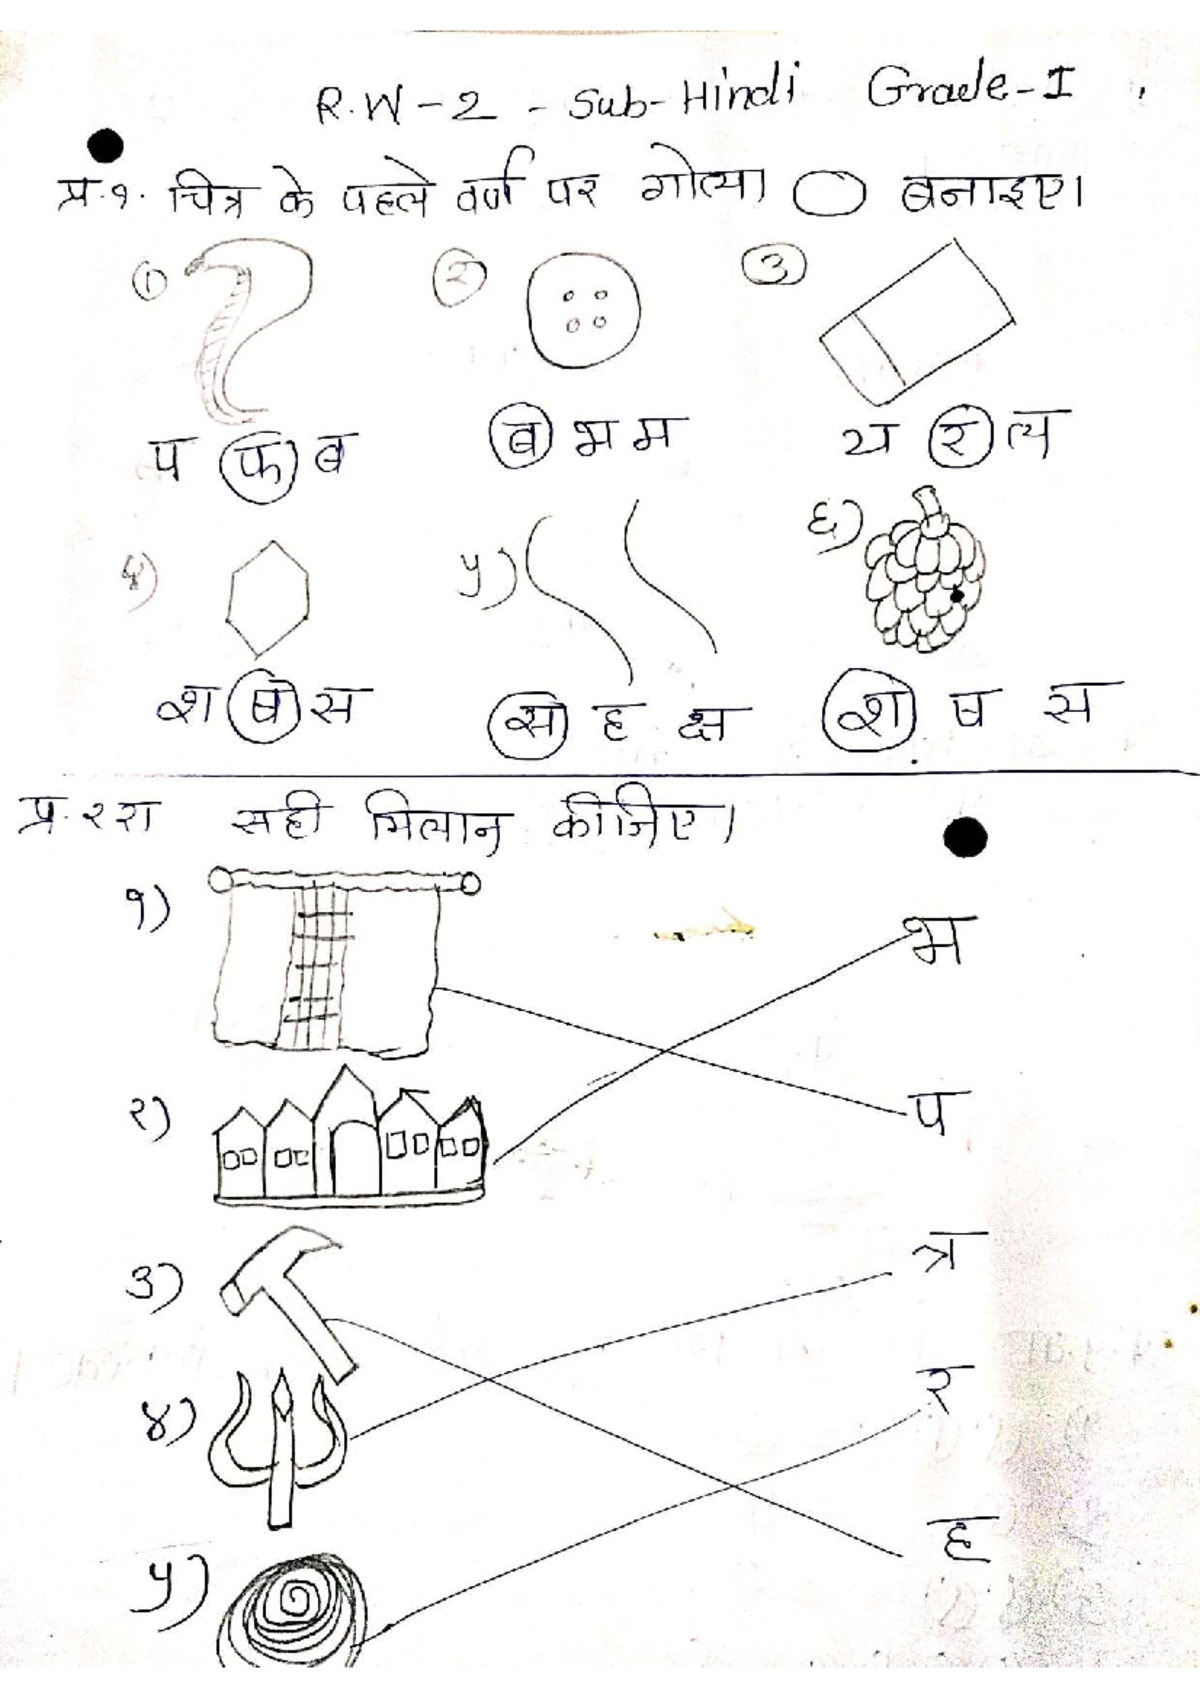 R.W-2 - Sub-Hindi Grade-I
प्र.१. चित्र के पहले वर्ण पर गोला बनाइए।
१ २ ३
प फ ब ब भ म य र ल
४) ५) ६)
श ष स स ह क्ष श ष स
प्र.२रा सही मिलान कीजिए।
१) भ
२) प
३) त्र
४) र
५) ह